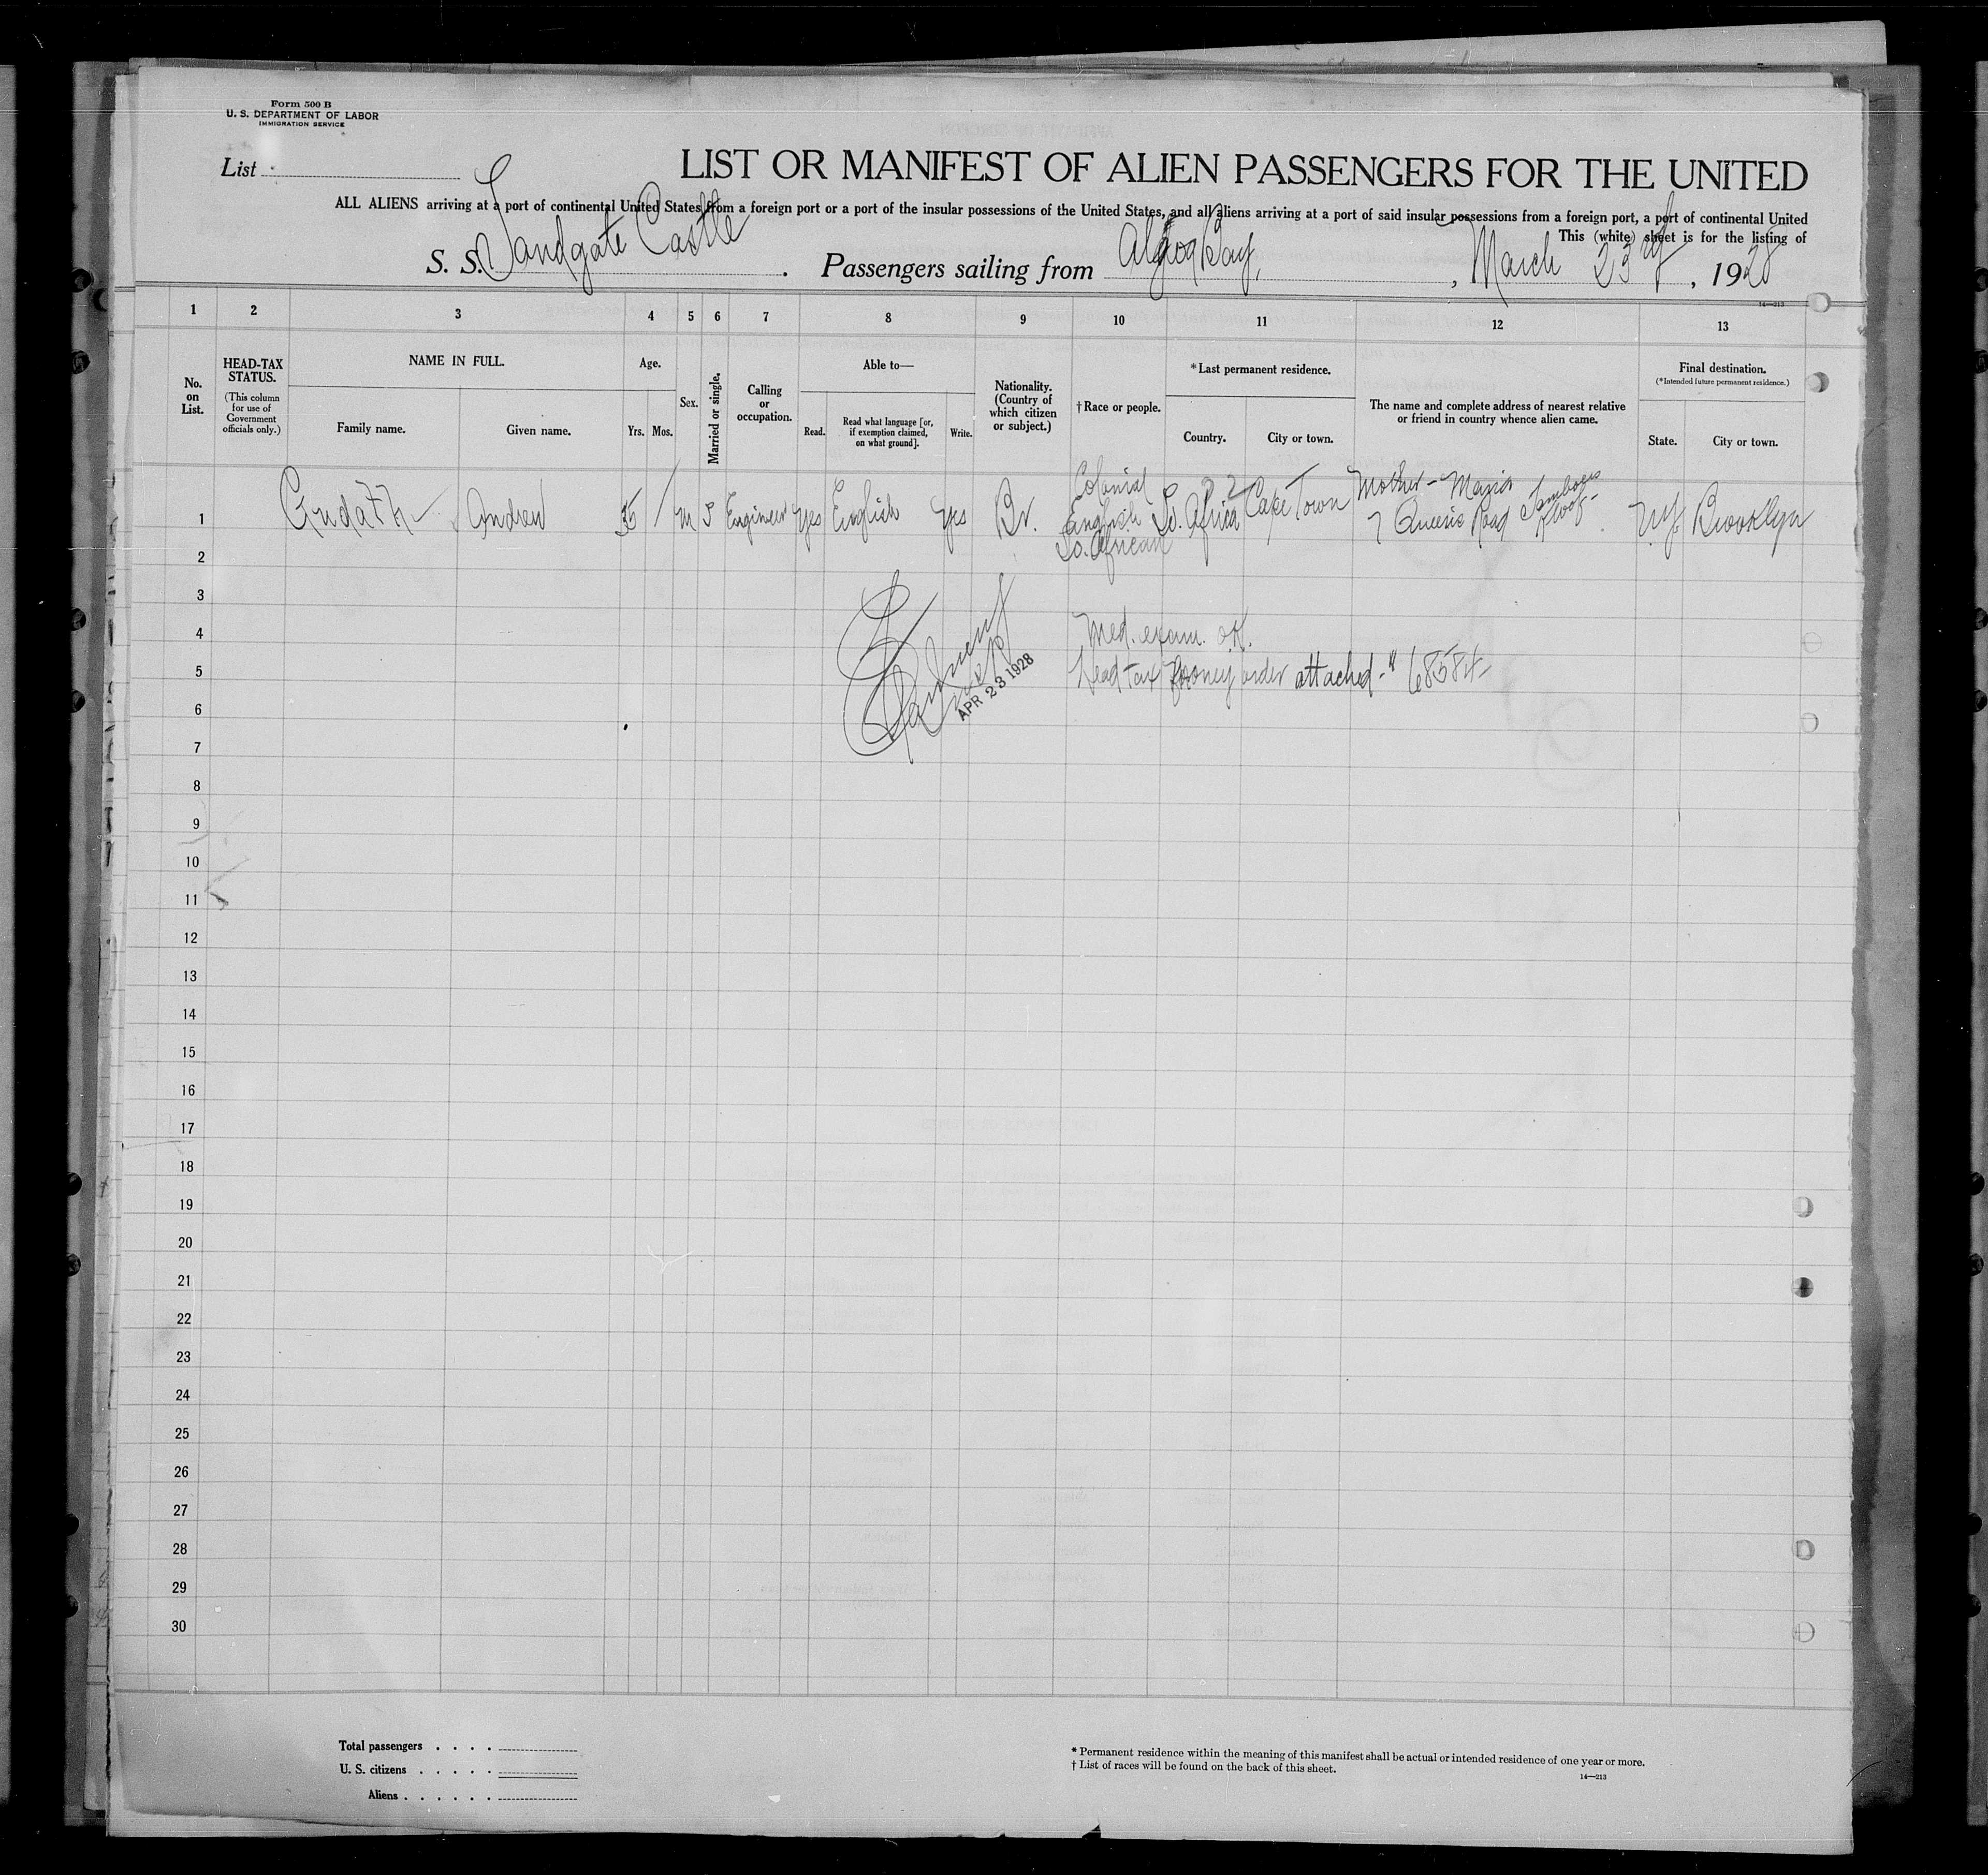 Form 500 B
U. S. DEPARTMENT OF LABOR
IMMIGRATION SERVICE
List
LIST OR MANIFEST OF ALIEN PASSENGERS FOR THE UNITED
ALL ALIENS arriving at a port of continental United States from a foreign port or a port of the insular possessions of the United States, and all aliens arriving at a port of said insular possessions from a foreign port, a port of continental United
This (white) sheet is for the listing of
S. S. Sandgate Castle . Passengers sailing from Algoa Bay, , March 23rd , 1928
14—213
1 2 3 4 5 6 7 8 9 10 11 12 13
No. on List.
HEAD-TAX STATUS.
(This column for use of Government officials only.)
NAME IN FULL.
Family name. Given name.
Age.
Yrs. Mos.
Sex.
Married or single.
Calling or occupation.
Able to—
Read. Read what language [or, if exemption claimed, on what ground]. Write.
Nationality. (Country of which citizen or subject.)
† Race or people.
* Last permanent residence.
Country. City or town.
The name and complete address of nearest relative or friend in country whence alien came.
Final destination.
(* Intended future permanent residence.)
State. City or town.
1 Andrew 35 M S Engineer yes English yes Br. Colonial English So. African So. Africa Cape Town Mother - Maria 7 Queens Road Tamboers Kloof - N.Y. Brooklyn
2
3
4 Med. exam. OK.
5 Head tax money order attached - # 68584
APR 23 1928
6
7
8
9
10
11
12
13
14
15
16
17
18
19
20
21
22
23
24
25
26
27
28
29
30
Total passengers . . . .
U. S. citizens . . . . .
Aliens . . . . . .
* Permanent residence within the meaning of this manifest shall be actual or intended residence of one year or more.
† List of races will be found on the back of this sheet.
14—213